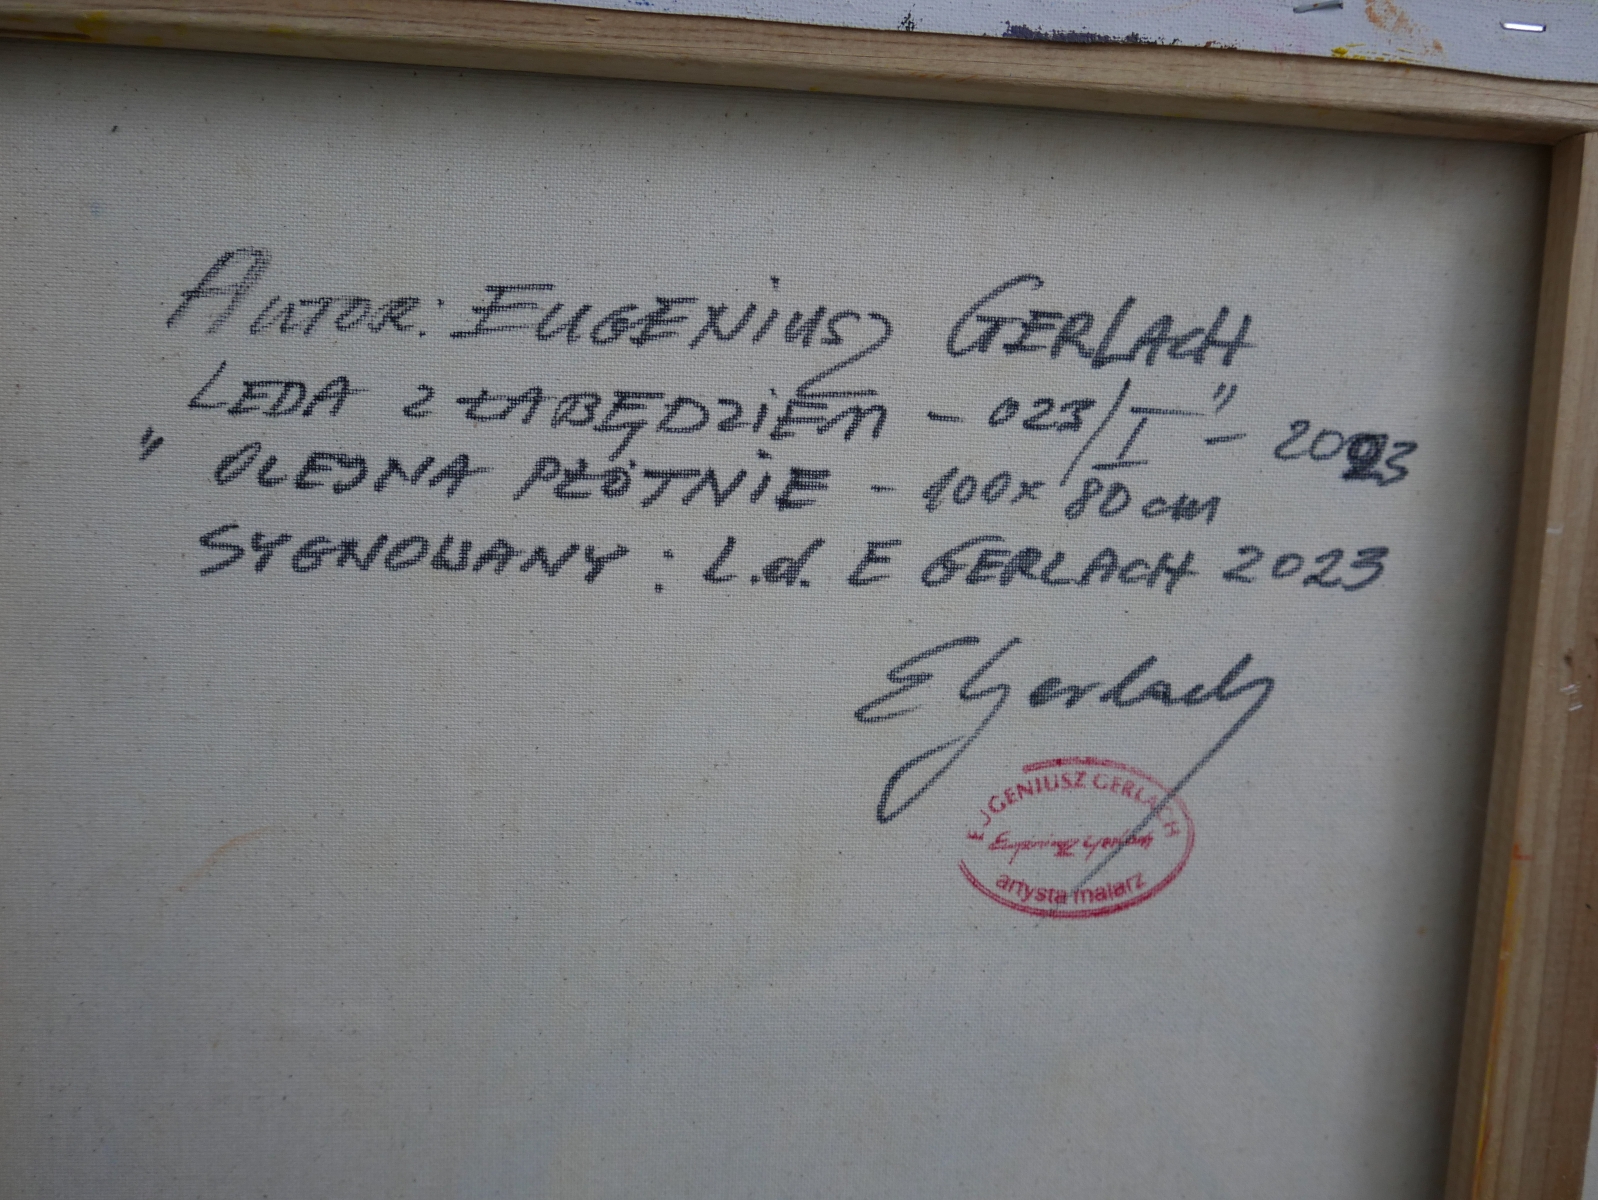 AUTOR: EUGENIUSZ GERLACH
„LEDA Z ŁABĘDZIEM - 023/I” - 2023
OLEJNA PŁÓTNIE - 100x80cm
SYGNOWANY: L.d. E GERLACH 2023
EGerlach
EUGENIUSZ GERLACH
artysta malarz